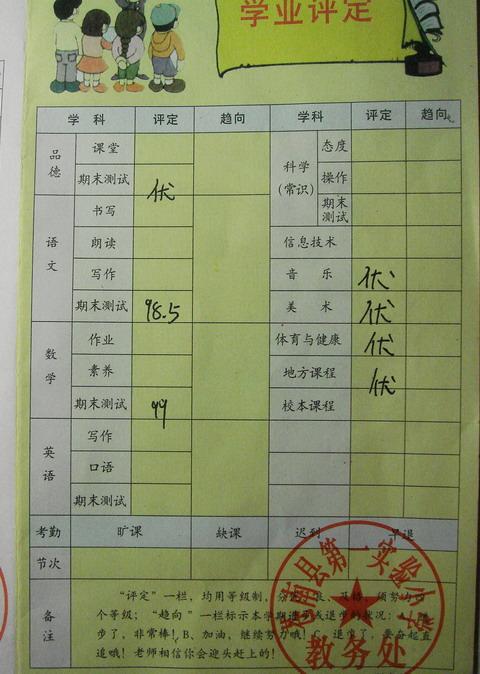 学业评定
学科 评定 趋向 学科 评定 趋向
品德 课堂 科学(常识) 态度
期末测试 优 操作
期末测试
语文 书写
朗读 信息技术
写作 音乐 优
期末测试 98.5 美术 优
数学 作业 体育与健康 优
素养 地方课程 优
期末测试 99 校本课程
英语 写作
口语
期末测试
考勤 旷课 缺课 迟到 早退
节次
备注
“评定”一栏，均用等级制，分优、良、及格、须努力四
个等级；“趋向”一栏标示本学期进步或退步的状况：A、进
步了，非常棒！B、加油，继续努力哦！C、退步了，要奋起直
追哦！老师相信你会迎头赶上的！
县第一实验小学
教务处